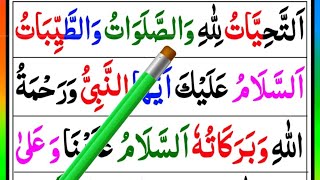 اَلتَّحِيَّاتُ لِلّٰهِ وَالصَّلَوَاتُ وَالطَّيِّبَاتُ
اَلسَّلَامُ عَلَيْكَ اَيُّهَا النَّبِيُّ وَرَحْمَةُ
اللّٰهِ وَبَرَكَاتُهٗ اَلسَّلَامُ عَلَيْنَا وَعَلٰى